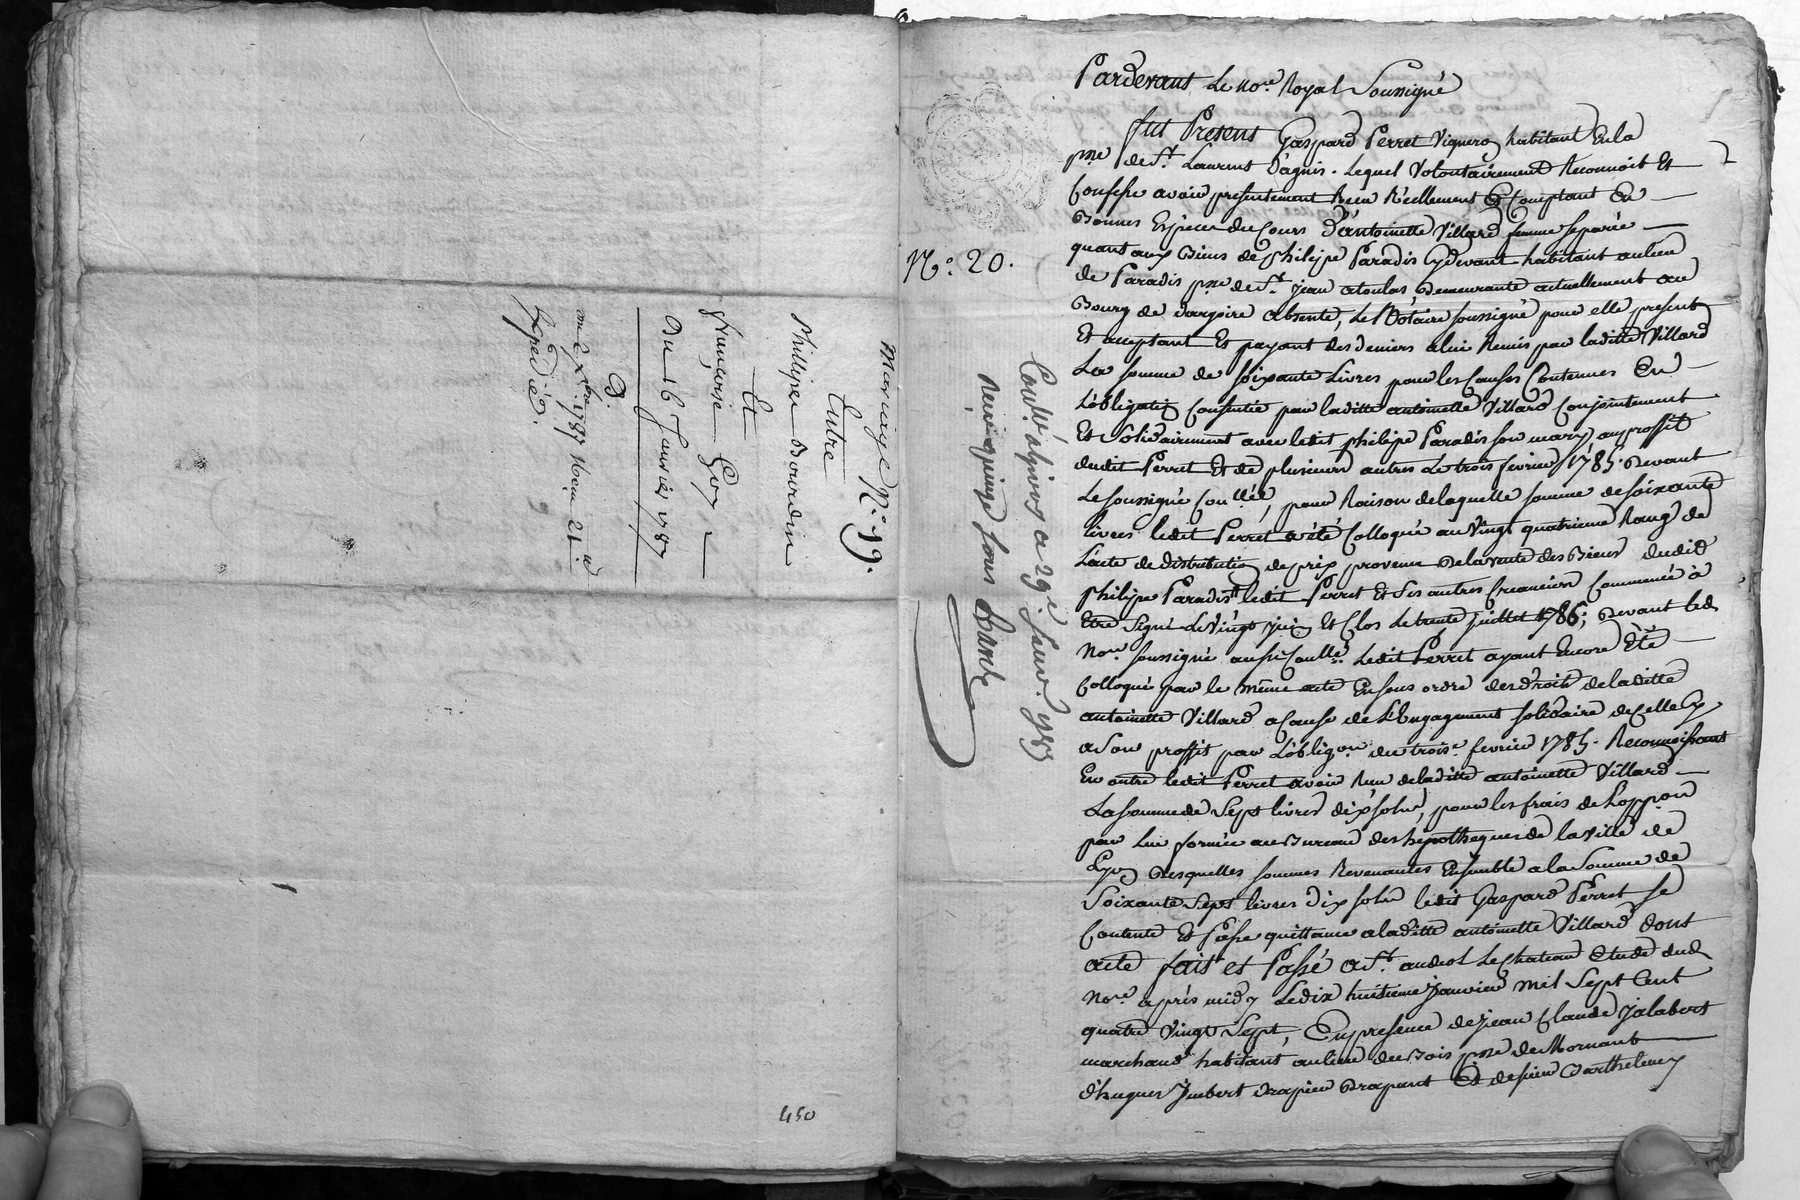 Mariage N.° 19.
Entre
Phillipe Bourdin
Et
françoise Goy
Du 16 Janvier 1787
D.
1787 Reçu 21
Expediée.
450
N.° 20.
Con.lé a Givors a 29.e Janv. 1787
Reçu quinze sous
Pardevant Le no.re Royal Soussigné
fut Present Gaspard Perret Vigneron habitant En la
p.sse de S.t Laurent D'agnis. Lequel Volontairement Reconnoit Et
Confesse avoir presentement Reçu Réellement Et Comptant En
Bonnes Espèces du Cours D'antoinette Villard femme separée
quant aux Biens de philipe Paradis cydevant habitant au lieu
de Paradis p.sse de S.t Jean atoulas, Demeurante actuellement au
Bourg de dargoire absente, Le Notaire soussigné pour elle present
Et acceptant Et payant des Deniers a lui Remis par laditte Villard
La somme de soixante Livres pour les Causes Contenues En
L'obligation Consentie par laditte antoinette Villard Conjointement
Et Solidairement avec ledit philipe Paradis son mary, au proffit
dudit Perret Et de plusieurs autres Le trois fevrier 1785. Devant
Le soussigné Con.llée, pour Raison de laquelle somme de soixante
livres ledit Perret a été Colloqué au Vingt quatrieme Rang de
L'acte de distribution de prix provenu De la vente des Biens dudit
philipe Paradis ledit Perret Et Ses autres Creanciers Commencé à
Etre Signé Le Vingt juin Et Clos Le trente juillet 1786; Devant led.
No.re soussigné aussi Con.llé. Ledit Perret ayant Encore Eté
Colloqué par le même acte En sous ordre des droits de laditte
antoinette Villard a Cause de L'Engagement solidaire de celle Cy
a Son proffit par L'oblig.on du trois.e fevrier 1785. Reconnoissant
En outre ledit Perret avoir Reçu de laditte antoinette Villard
La somme de Sept livres dix sols, pour les frais de L'opp.on
par Lui formée au Bureau des hipotheques de la Ville de
Lyon Desquelles sommes Revenantes Ensemble a la Somme de
Soixante Sept livres dix sols ledit Gaspard Perret se
Contente Et Passe quittance a laditte antoinette Villard dont
acte fait et Passé a S.t andeol Le Chateau Etude dud.
No.re après midy Le dix huitieme Janvier mil Sept Cent
quatre Vingt Sept, En presence de jean Claude Jalabert
marchand habitant au lieu du Bois p.sse de Mornant
d'hugues Imbert Drapant Et de pierre Barthelemy